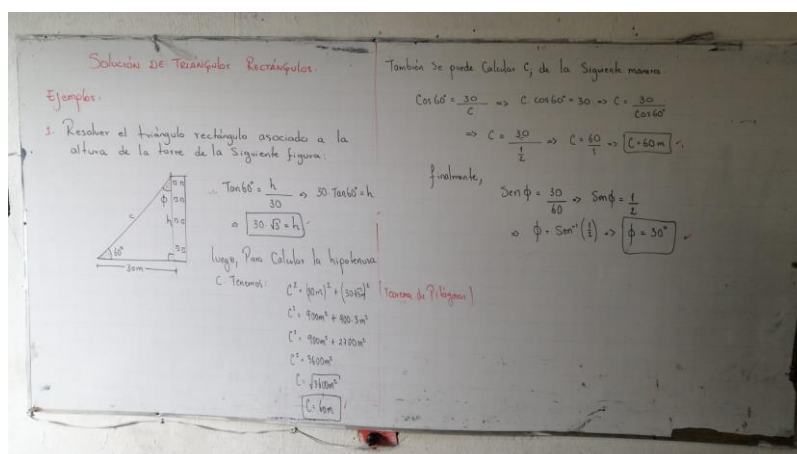 Solución de Triángulos Rectángulos.
Ejemplos.
1. Resolver el triángulo rectángulo asociado a la
altura de la torre de la siguiente figura:
c
φ
h
60°
30m
Tan60° = h/30 => 30·Tan60° = h
=> 30·√3 = h
luego, Para Calcular la hipotenusa
C. Tenemos:
C² = (30m)² + (30√3)² (Teorema de Pitágoras)
C² = 900m² + 900·3m²
C² = 900m² + 2700m²
C² = 3600m²
C = √3600m²
C = 60m
También se puede Calcular C, de la Siguiente manera
Cos60° = 30/C => C·cos60° = 30 => C = 30/Cos60°
=> C = 30/(1/2) => C = 60/1 => C = 60m
finalmente,
Sen φ = 30/60 => Sen φ = 1/2
=> φ = Sen⁻¹(1/2) => φ = 30°